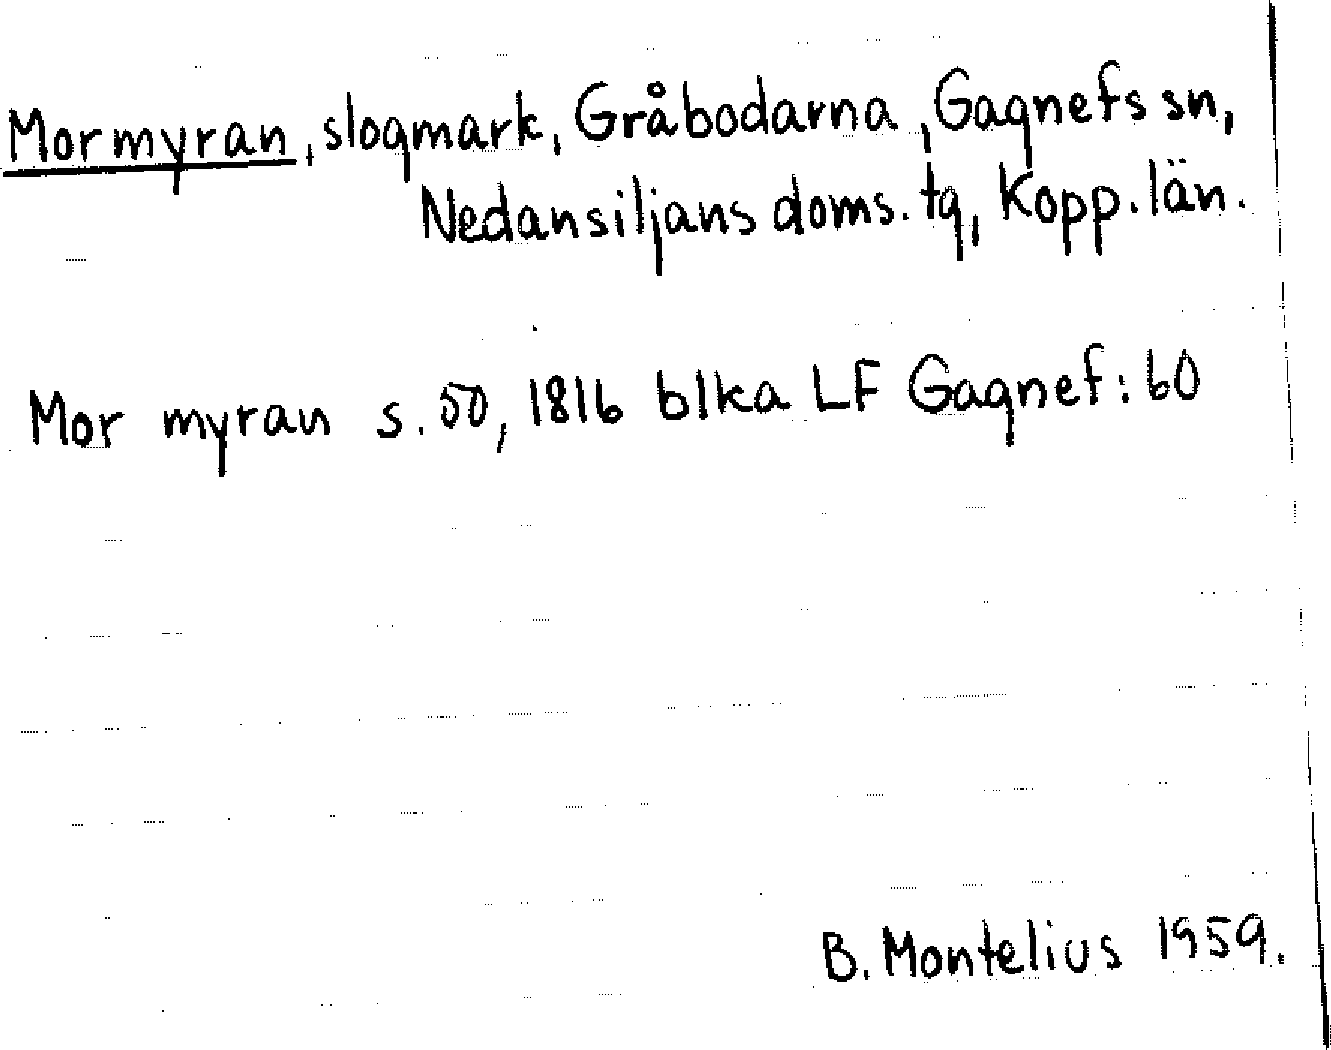 Mormyran, slogmark, Gråbodarna, Gagnefs sn,
Nedansiljans doms. tg, Kopp. län.
Mor myran s. 50, 1816 blka LF Gagnef: 60
B. Montelius 1959.